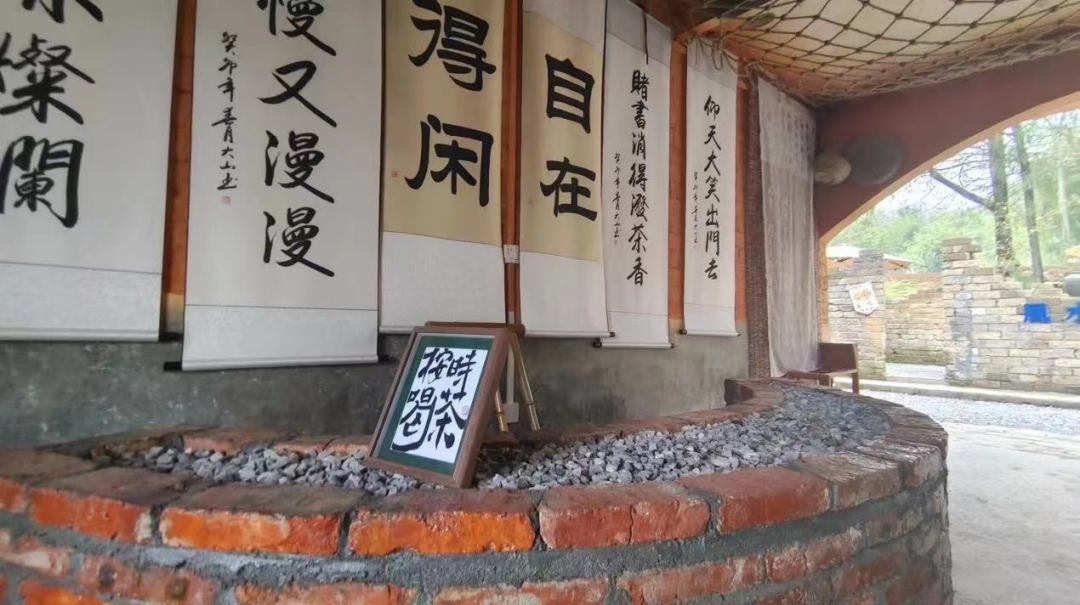 燦闌
慢又漫漫
癸卯年春月大山书
得闲
自在
賭書消得潑茶香
癸卯年春月大山书
仰天大笑出門去
癸卯年春月大山书
按時
喝茶